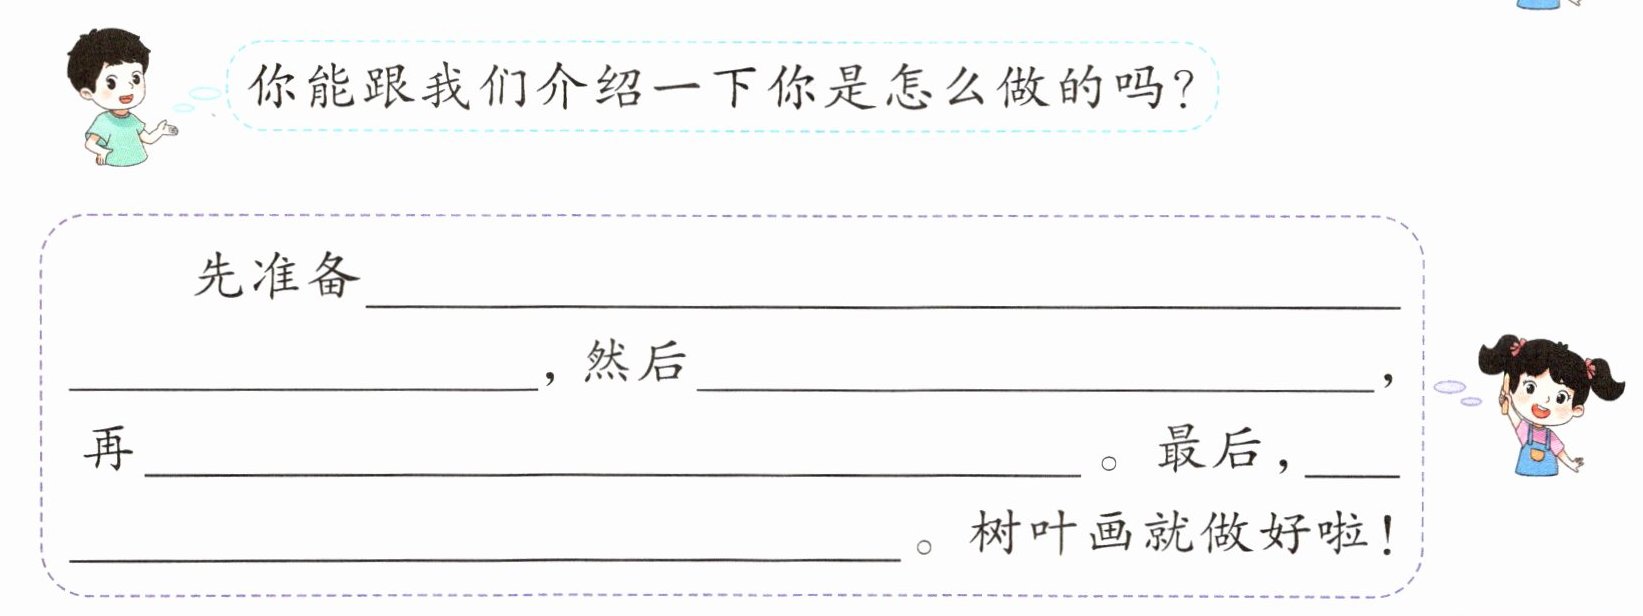 你能跟我们介绍一下你是怎么做的吗？
先准备
，然后，
再。最后，
。树叶画就做好啦！